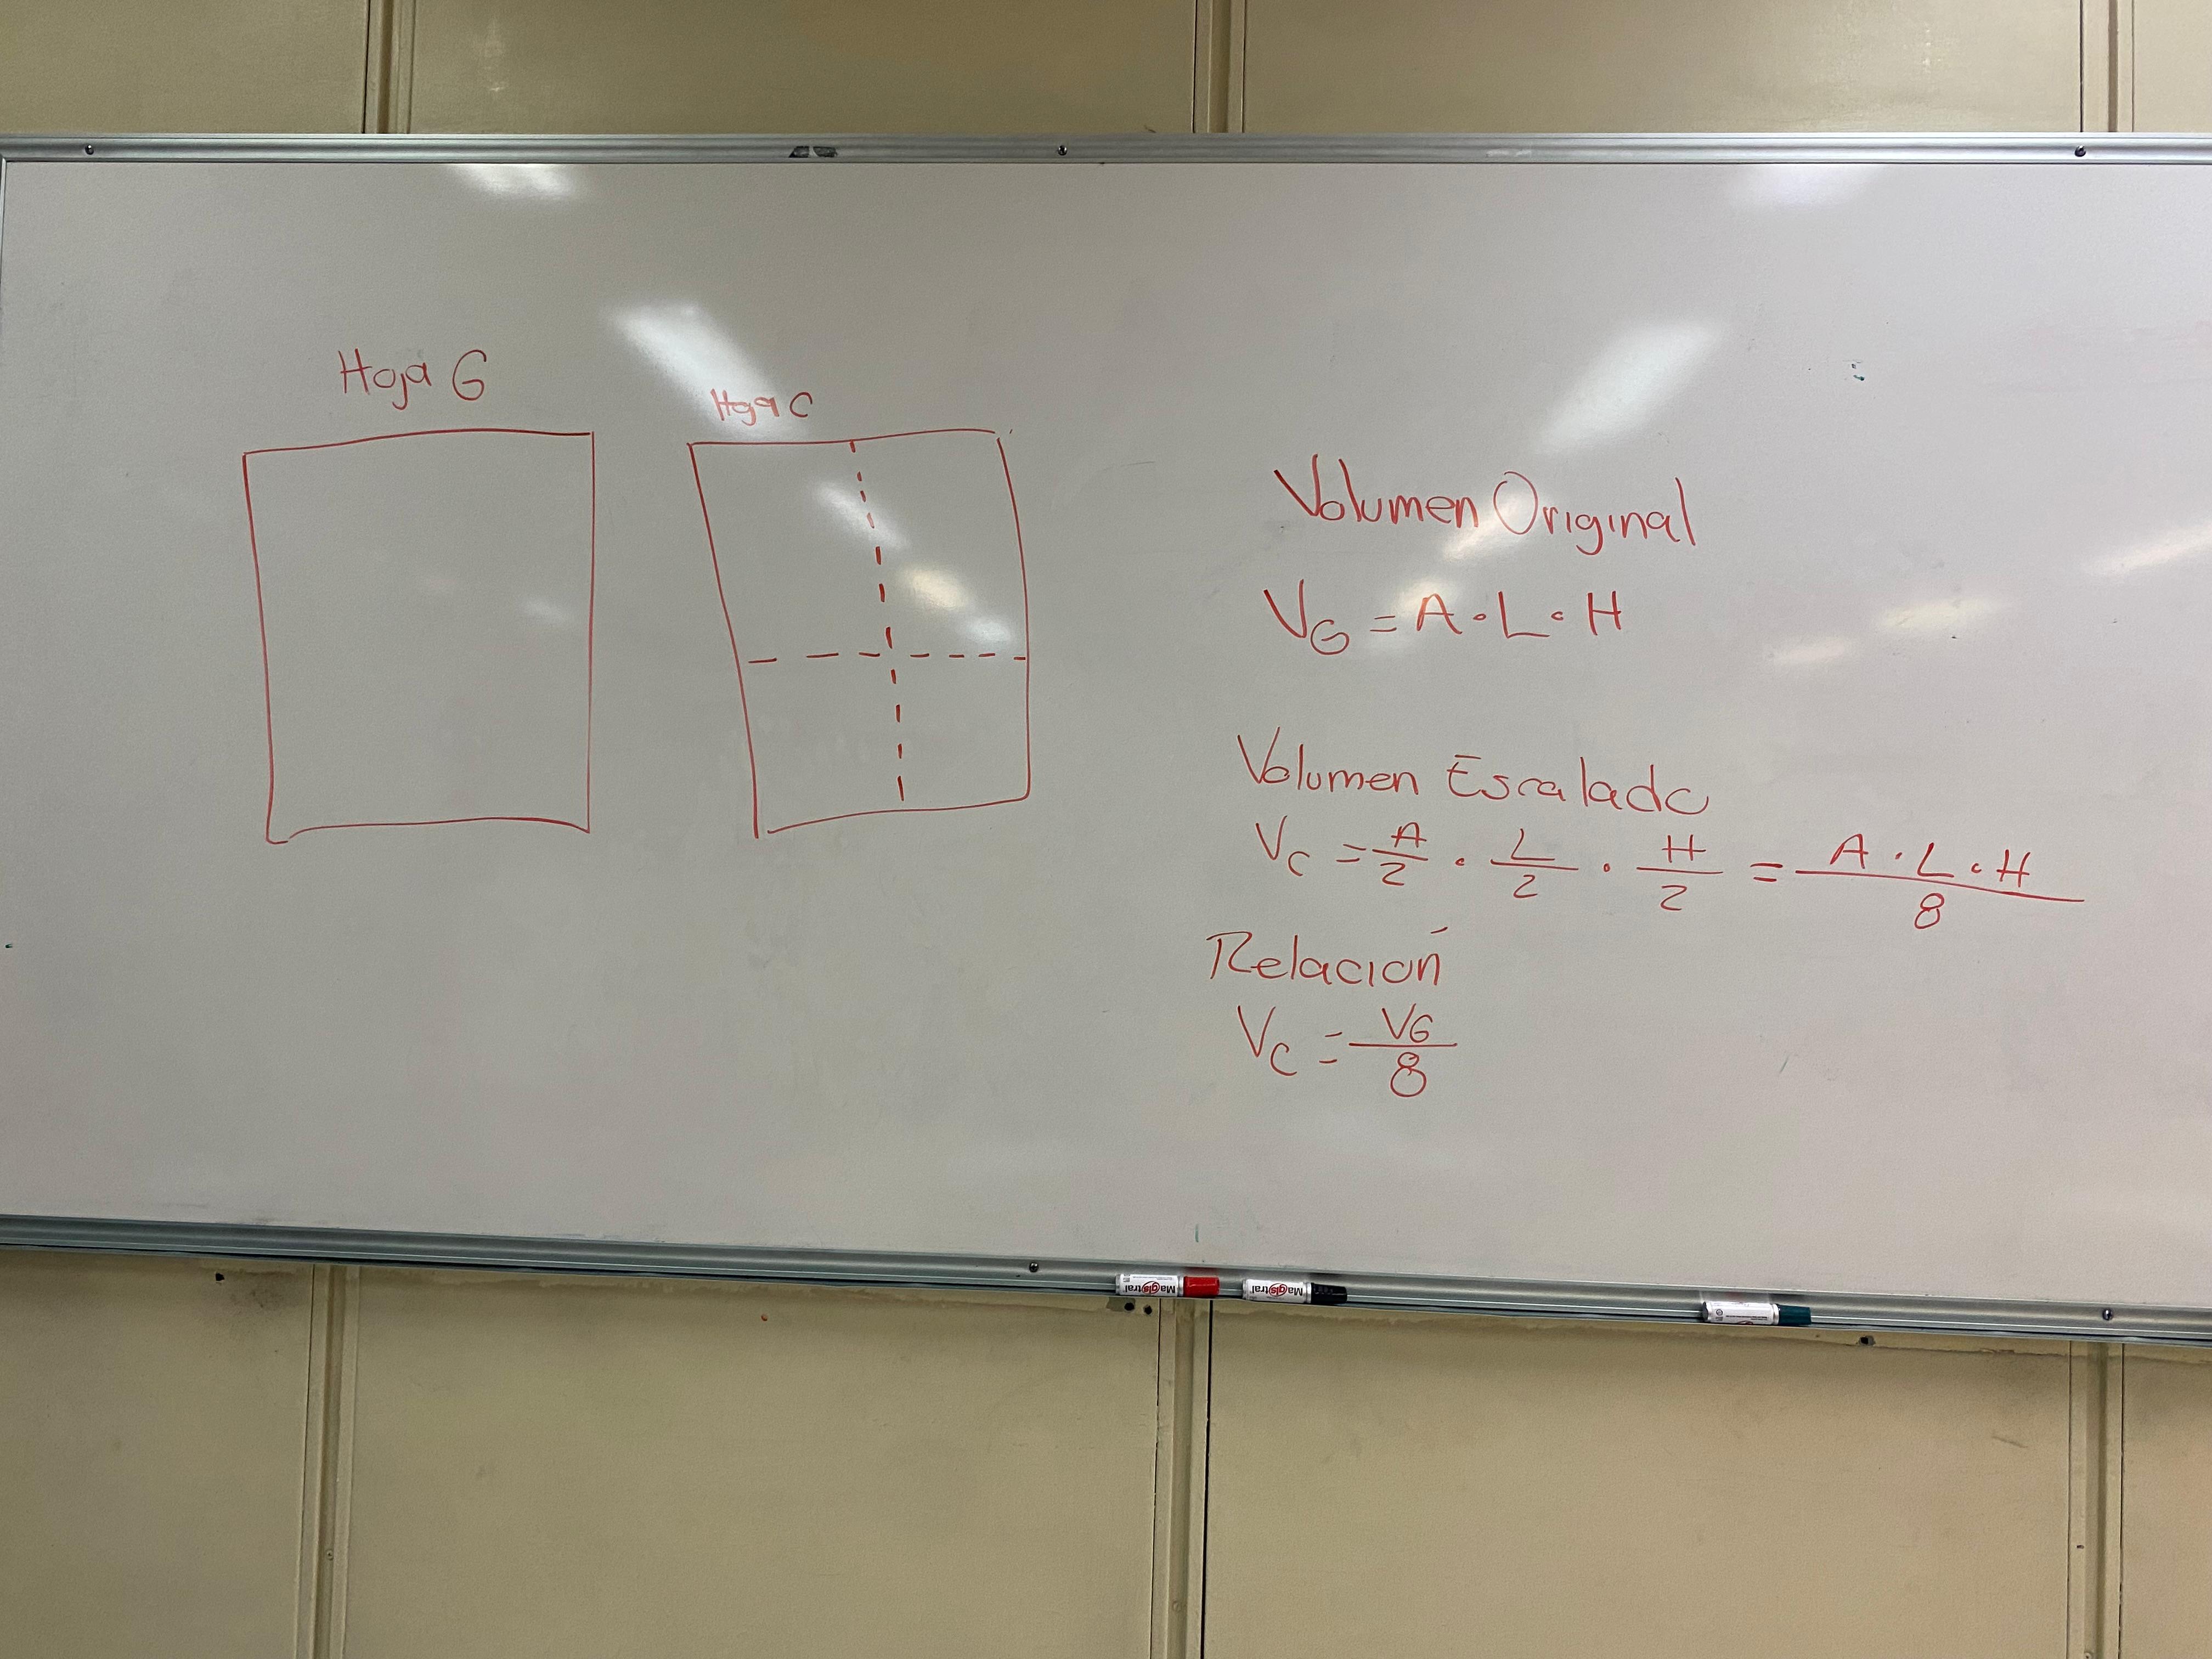 Hoja G
Hoja C
Volumen Original
V_G = A · L · H
Volumen Escalado
V_C = A/2 · L/2 · H/2 = A · L · H / 8
Relación
V_C = VG/8
Magistral
Magistral